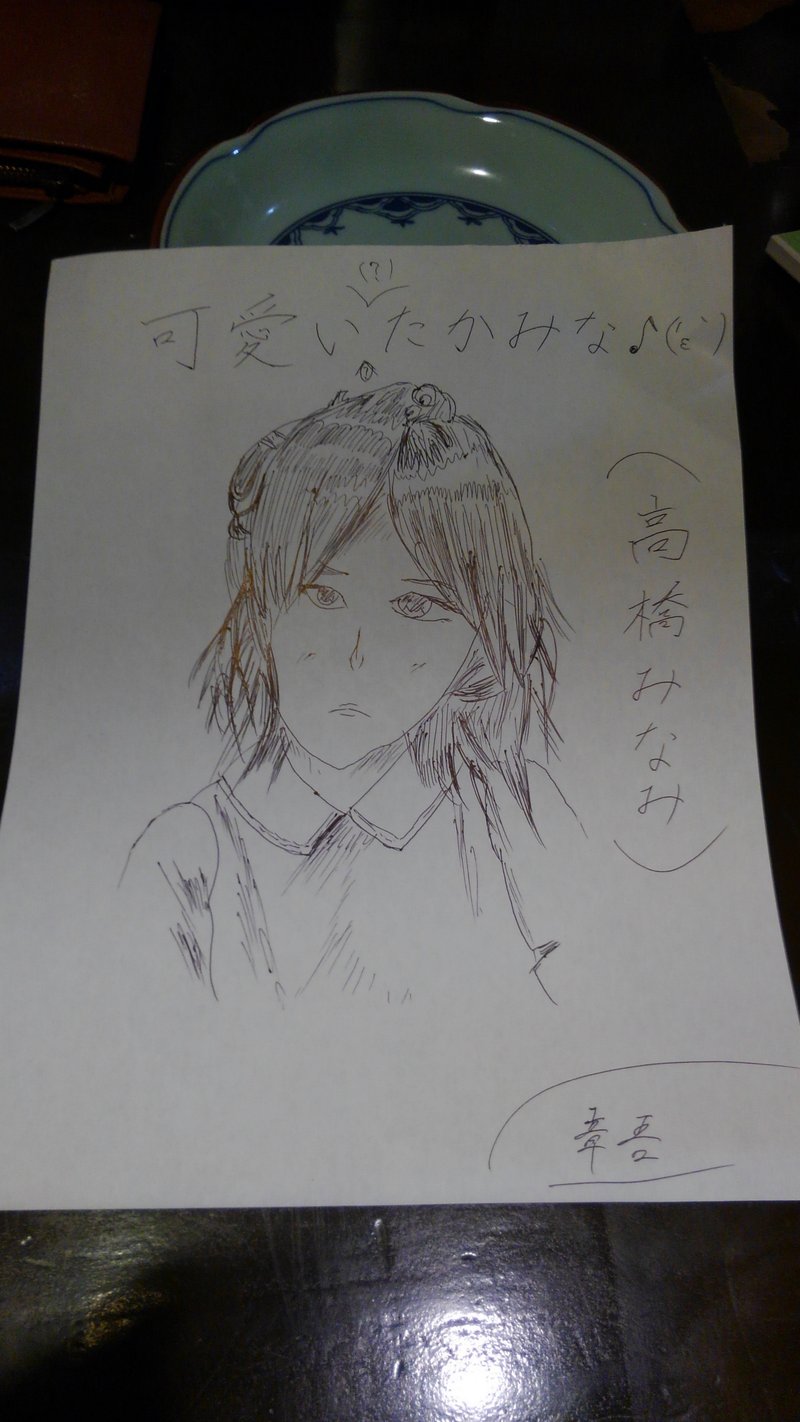 (?)
可愛いたかみな♪('ε')
(高橋みなみ)
章吾